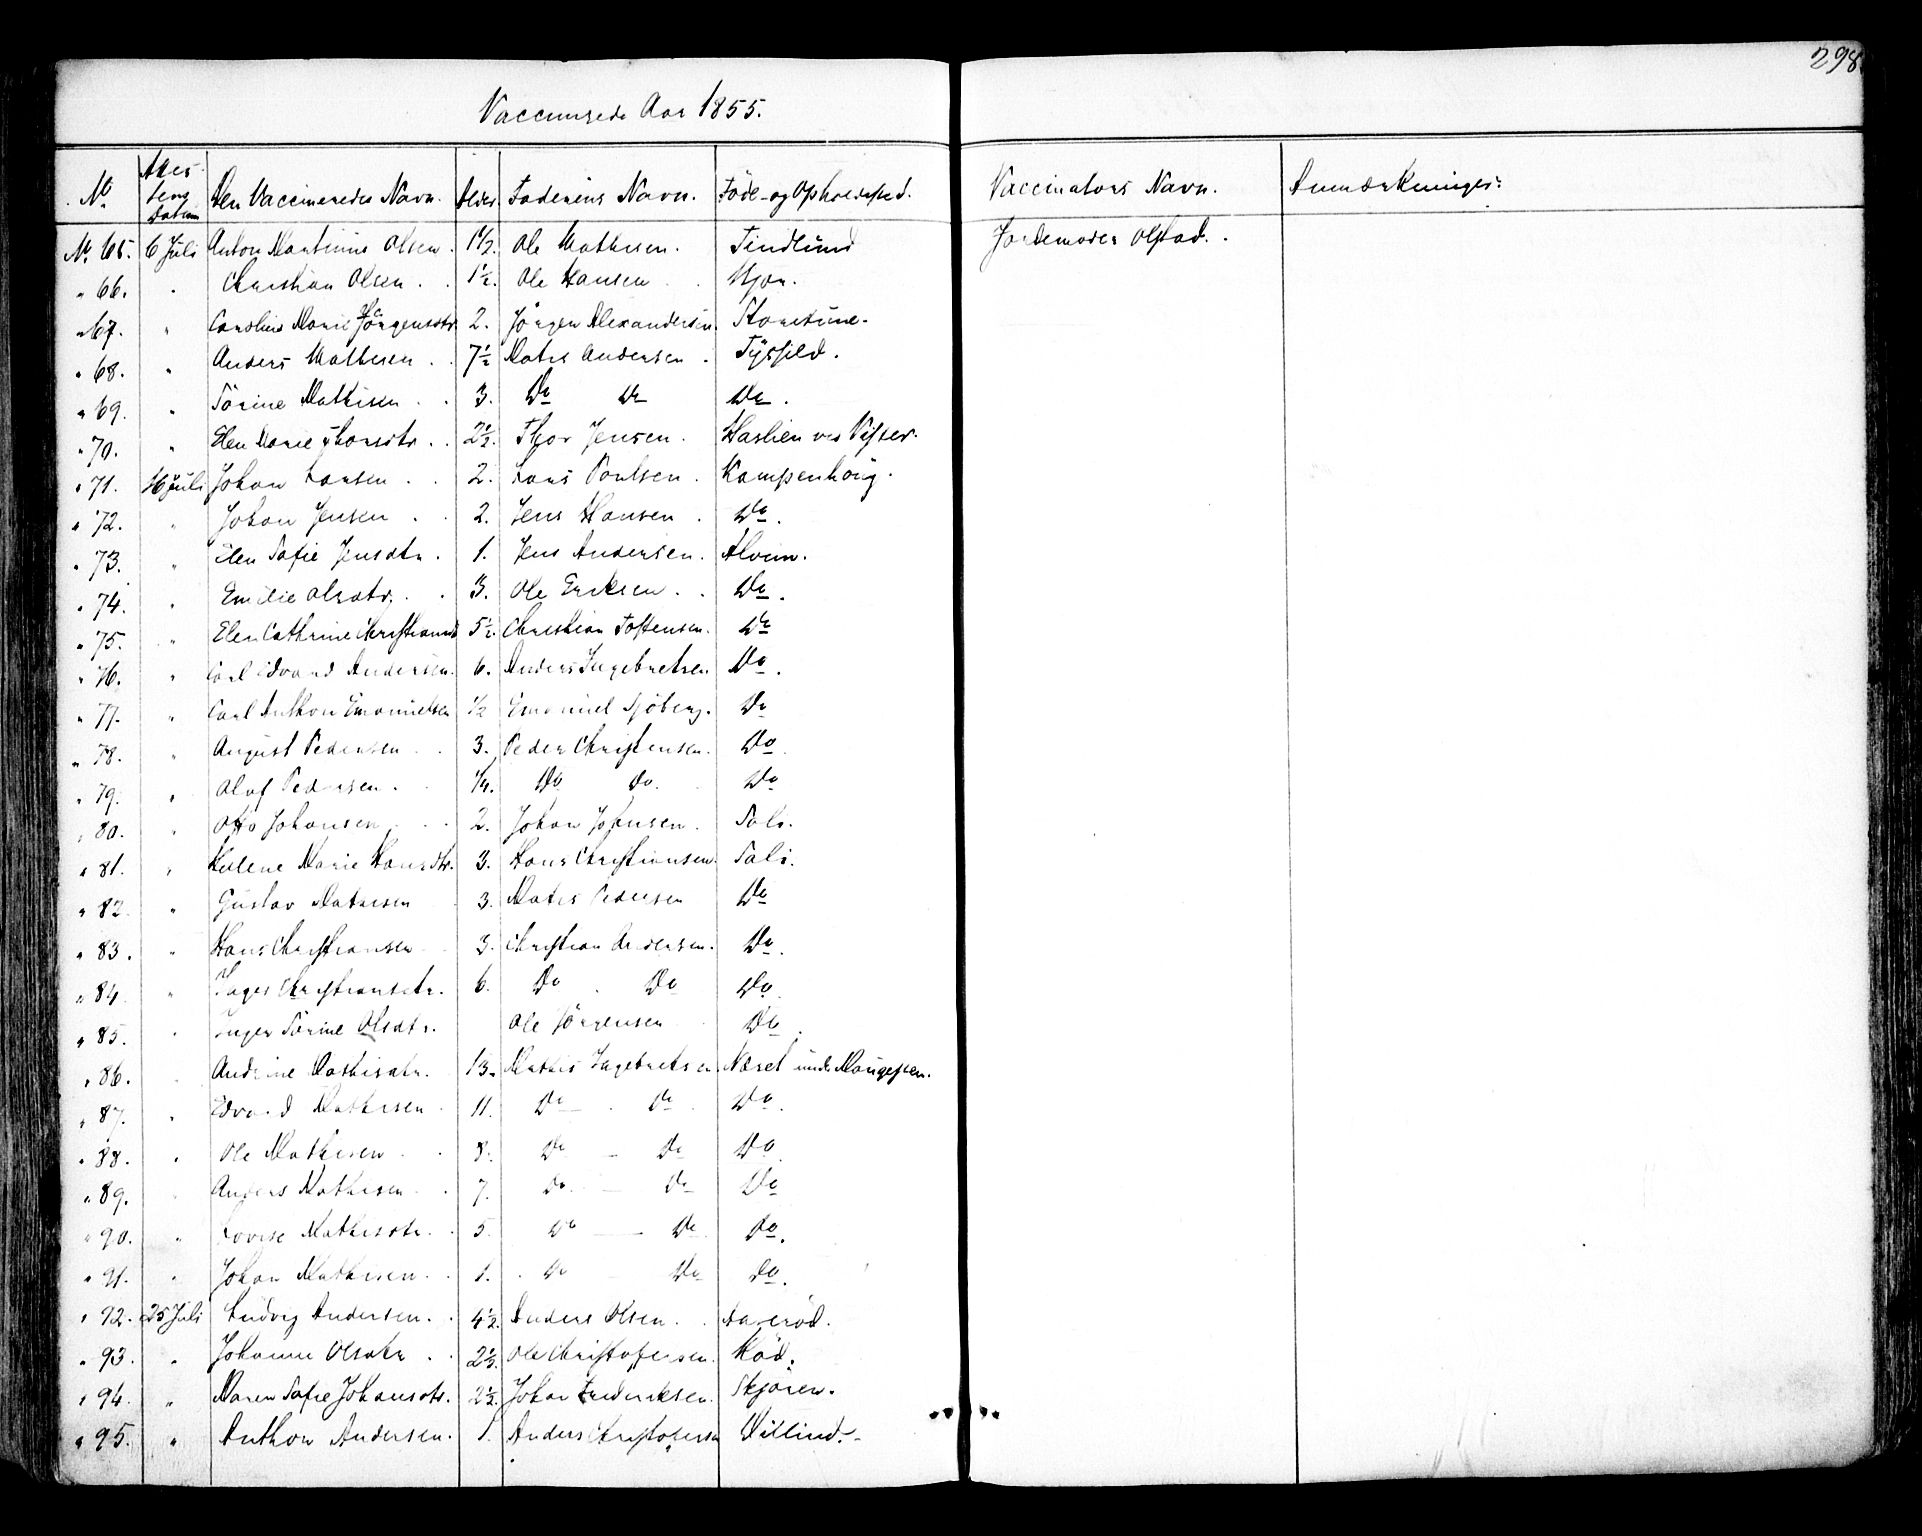 298
Vaccinerede Aar 1855.
No Attestens Datum Den Vaccineredes Navn. Alder. Faderens Navn. Føde- og Opholdssted. Vaccinators Navn. Anmærkninger:
No 65. 6 Juli Anton Martinius Olsen. 1 1/2. Ole Mathisen. Tindlund Jordemoder Olstad.
" 66. " Christian Olsen. 1 1/2. Ole Hansen
" 67. " Caroline Marie Jörgensdtr. 2. Jörgen Alexandersen.
" 68. " Anders Mathisen. 7 1/2 Matis Andersen.
" 69. " Sörine Mathisen. 3. Do Do Do.
" 70. " Elen Marie Thorsdtr. 2 1/2. Thor Jensen. Haslien ved Vister.
" 71. 16 Juli Johan Larsen. 2. Lars Poulsen. Kampenhöig.
" 72. " Johan Jensen. 2. Jens Hansen. Do.
" 73. " Elen Sofie Jensdtr. 1. Jens Andersen. Alvim.
" 74. " Emilie Olsdtr. 3. Ole Eriksen. Do.
" 75. " Elen Cathrine Christiansd 5 1/2. Christian Toftensen. Do
" 76. " Carl Edvard Andersen. 6. Anders Ingebretsen Do.
" 77. " Carl Anthon Emanuelsen 1/2 Emanuel Sjöberg. Do
" 78. " August Pedersen. 3. Peder Christensen. Do
" 79. " Olaf Pedersen. 1/4. Do Do. Do
" 80. " Otto Johansen. 2. Johan Johnsen.
" 81. " Helene Marie Hansdtr. 3. Hans Christiansen.
" 82. " Gustav Mathisen 3. Matis Pedersen Do
" 83. " Hans Christiansen 3. Christian Andersen. Do.
" 84. " Inger Christiansdtr. 6. Do Do Do.
" 85. " Inger Sörine Olsdtr. Ole Jörgensen Do.
" 86. Andrine Mathisdtr. 13. Mathis Ingebretsen. Næset under Haugesten.
" 87. " Edvard Mathisen. 11. Do Do Do.
" 88. " Ole Mathisen. 8. Do Do Do.
" 89. " Anders Mathisen. 7. Do. Do Do
" 90. " Lovise Mathisdtr. 5. Do Do Do.
" 91. " Johan Mathisen. 1. Do Do Do.
" 92. 25 Juli Ludvig Andersen. 4 1/2. Anders Olsen.
" 93. " Johanne Olsdtr. 2 1/2. Ole Christofersen.
" 94. " Maren Sofie Johansdtr. 2 1/2. Johan Frederiksen. Skjören.
" 95. " Anthon Andersen. 1. Anders Christofersen